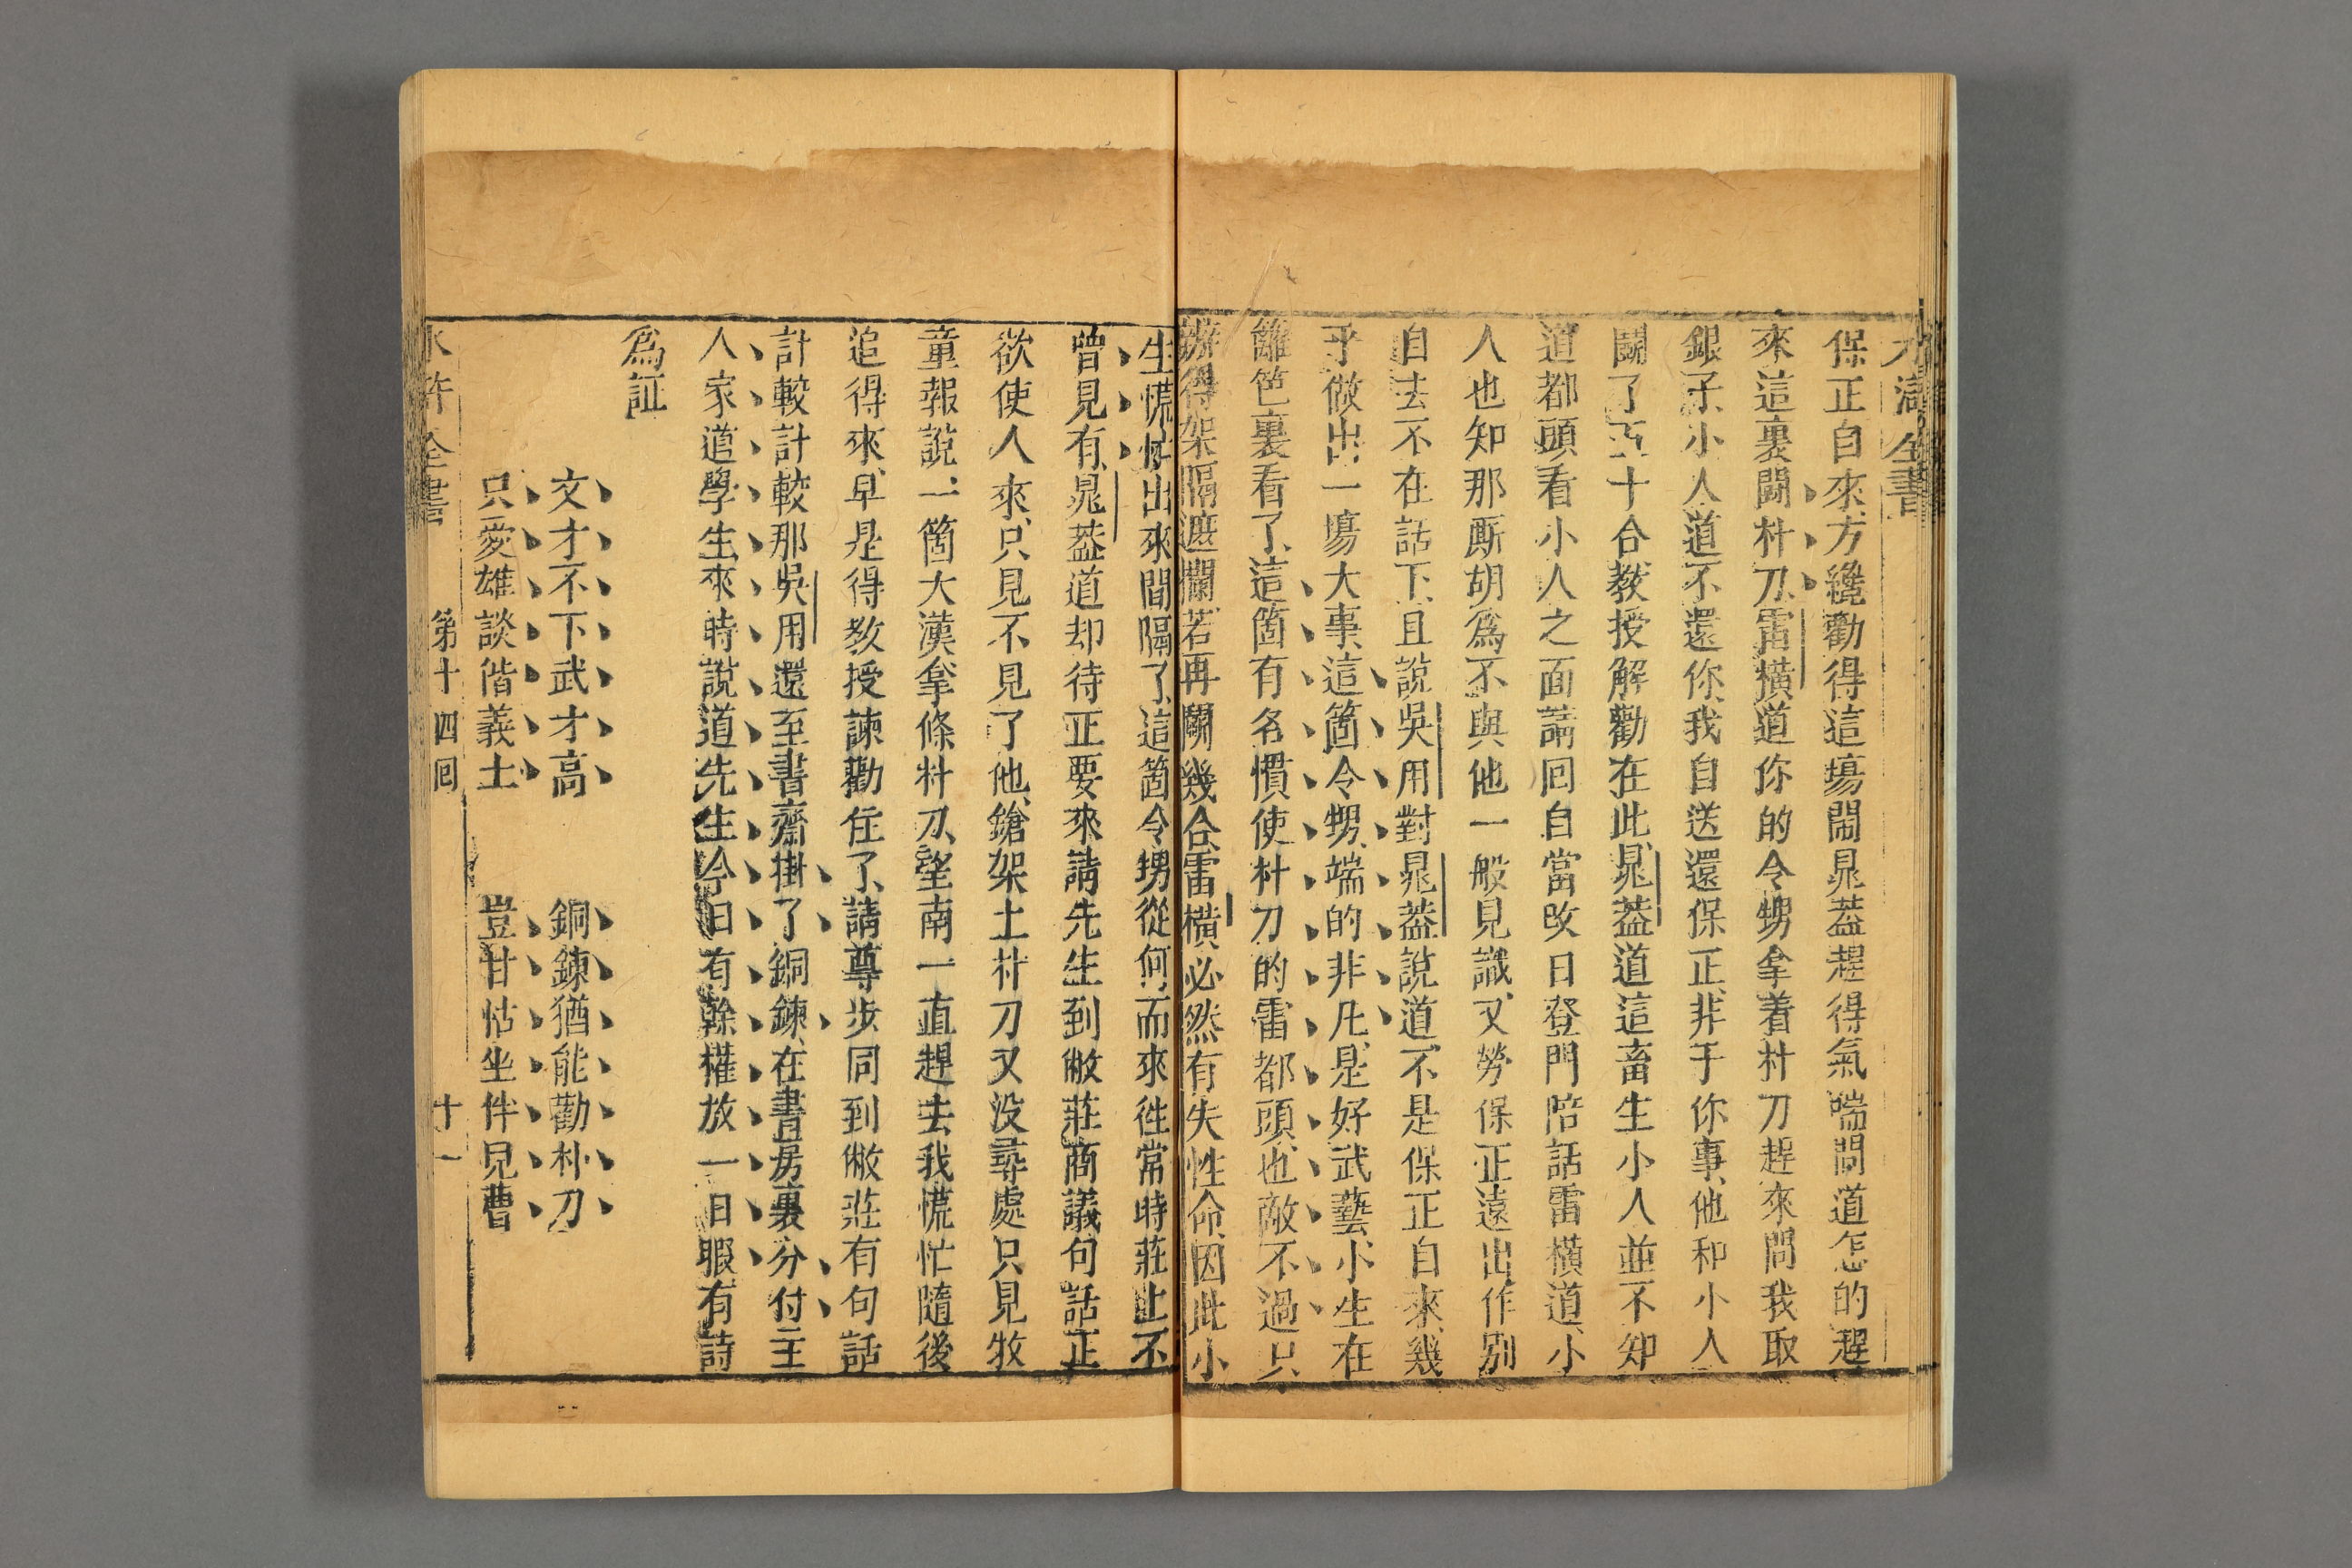 水滸全書
保正自來方纔勸得這塲閙晁葢趕得氣喘問道怎的趕
來這裏鬪朴刀雷橫道你的令甥拿着朴刀趕來問我取
銀子小人道不還你我自送還保正非干你事他和小人
鬪了五十合教授解勸在此晁葢道這畜生小人並不知
道都頭看小人之面請囘自當改日登門陪話雷橫道小
人也知那厮胡爲不與他一般見識又勞保正遠出作別
自去不在話下且說吳用對晁葢說道不是保正自來幾
乎做出一塲大事這箇令甥端的非凡是好武藝小生在
籬笆裏看了這箇有名慣使朴刀的雷都頭也敵不過只
辦得架隔遮攔若再鬪幾合雷橫必然有失性命因此小
生慌忙出來間隔了這箇令甥從何而來徃常時莊上不
曾見有晁葢道却待正要來請先生到敝莊商議句話正
欲使人來只見不見了他鎗架上朴刀又没尋處只見牧
童報說一箇大漢拿條朴刀望南一直趕去我慌忙隨後
追得來早是得教授諫勸住了請尊步同到敝莊有句話
計較計較那吳用還至書齋掛了銅鍊在書房裏分付主
人家道學生來時說道先生今日有幹權放一日暇有詩
爲証
文才不下武才高 銅鍊猶能勸朴刀
只愛雄談偕義士 豈甘怙坐伴兒曹
水滸全書 第十四囘 十一